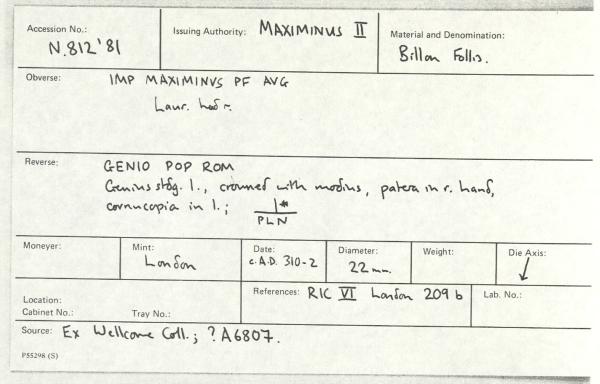 Accession No.: Issuing Authority: MAXIMINUS II Material and Denomination:
N.812'81 Billon Follis.
Obverse: IMP MAXIMINVS PF AVG
Laur. head r.
Reverse: GENIO POP ROM
Genius stdg. l., crowned with modius, patera in r. hand,
cornucopia in l.; | *
PLN
Moneyer: Mint: Date: Diameter: Weight: Die Axis:
London c. A.D. 310-2 22 mm. ↓
Location: References: RIC VI London 209 b Lab. No.:
Cabinet No.: Tray No.:
Source: Ex Wellcome Coll.; ? A6807.
P55298 (S)